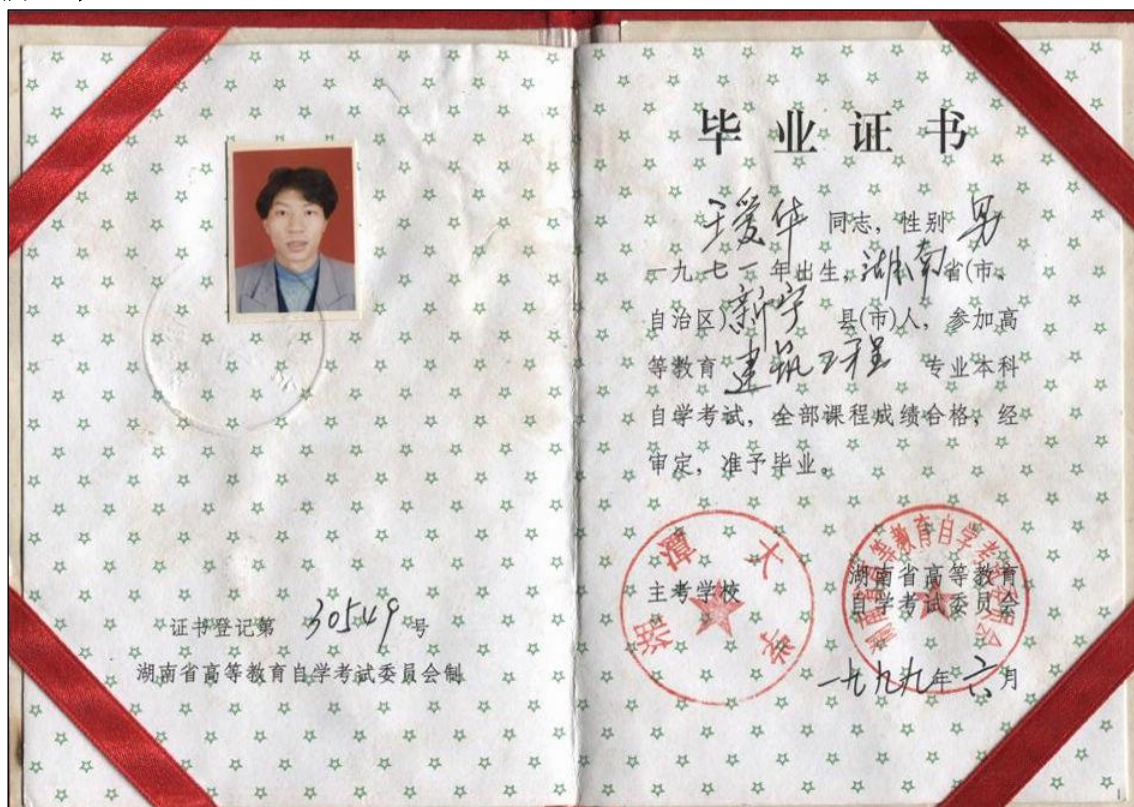 证书登记第 30549 号
湖南省高等教育自学考试委员会制
毕业证书
王爱华 同志，性别 男
一九七一年出生，湖南省(市、
自治区)新宁 县(市)人，参加高
等教育 建筑工程 专业本科
自学考试，全部课程成绩合格，经
审定，准予毕业。
湘潭大学
主考学校
湖南省高等教育自学考试委员会
湖南省高等教育
自学考试委员会
一九九九年六月